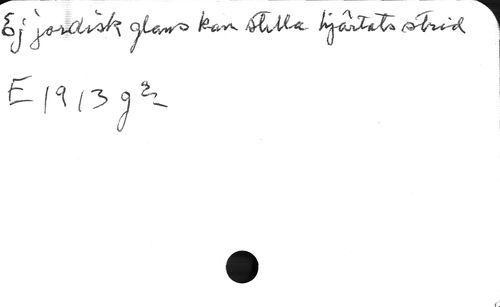 Ej jordisk glans kan stilla hjärtats strid
E 1913 g 2